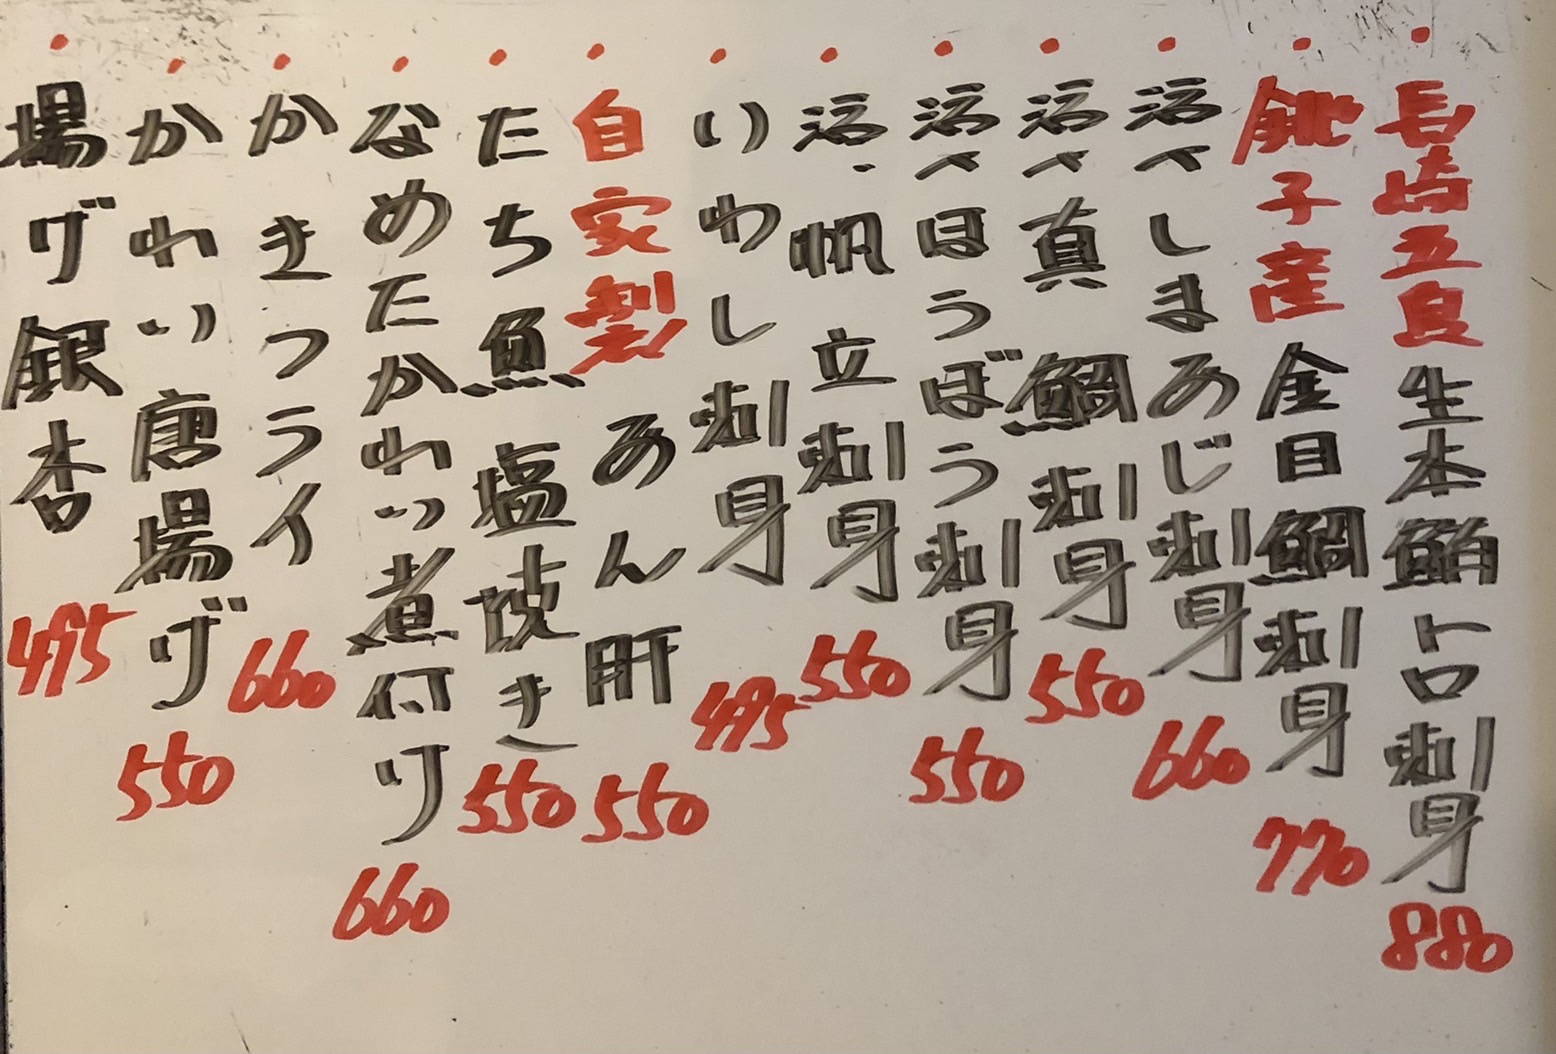 ・長崎五島生本鮪トロ刺身 880
・銚子産金目鯛刺身 770
・活〆しまあじ刺身 660
・活〆真鯛刺身 550
・活〆ほうぼう刺身 550
・活、帆立刺身 550
・いわし刺身 495
・自家製あん肝 550
・たち魚塩焼き 550
・なめたかれい煮付け 660
・かきフライ 660
・かれい唐揚げ 550
・揚げ銀杏 495